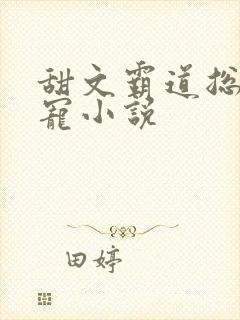 甜文霸道总
宠小说
田婷